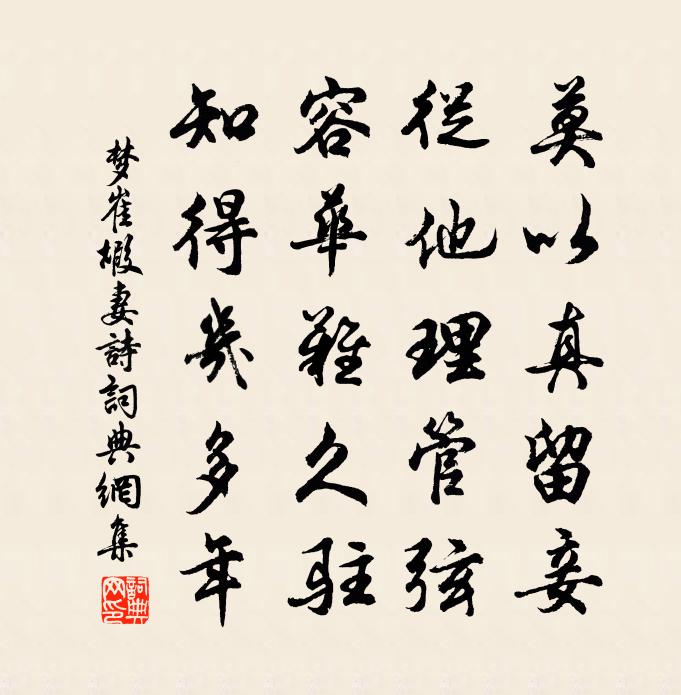 莫以真留妾
從他理管弦
容華難久駐
知得幾多年
梦崔嘏妻詩詞典網集
詞典網印